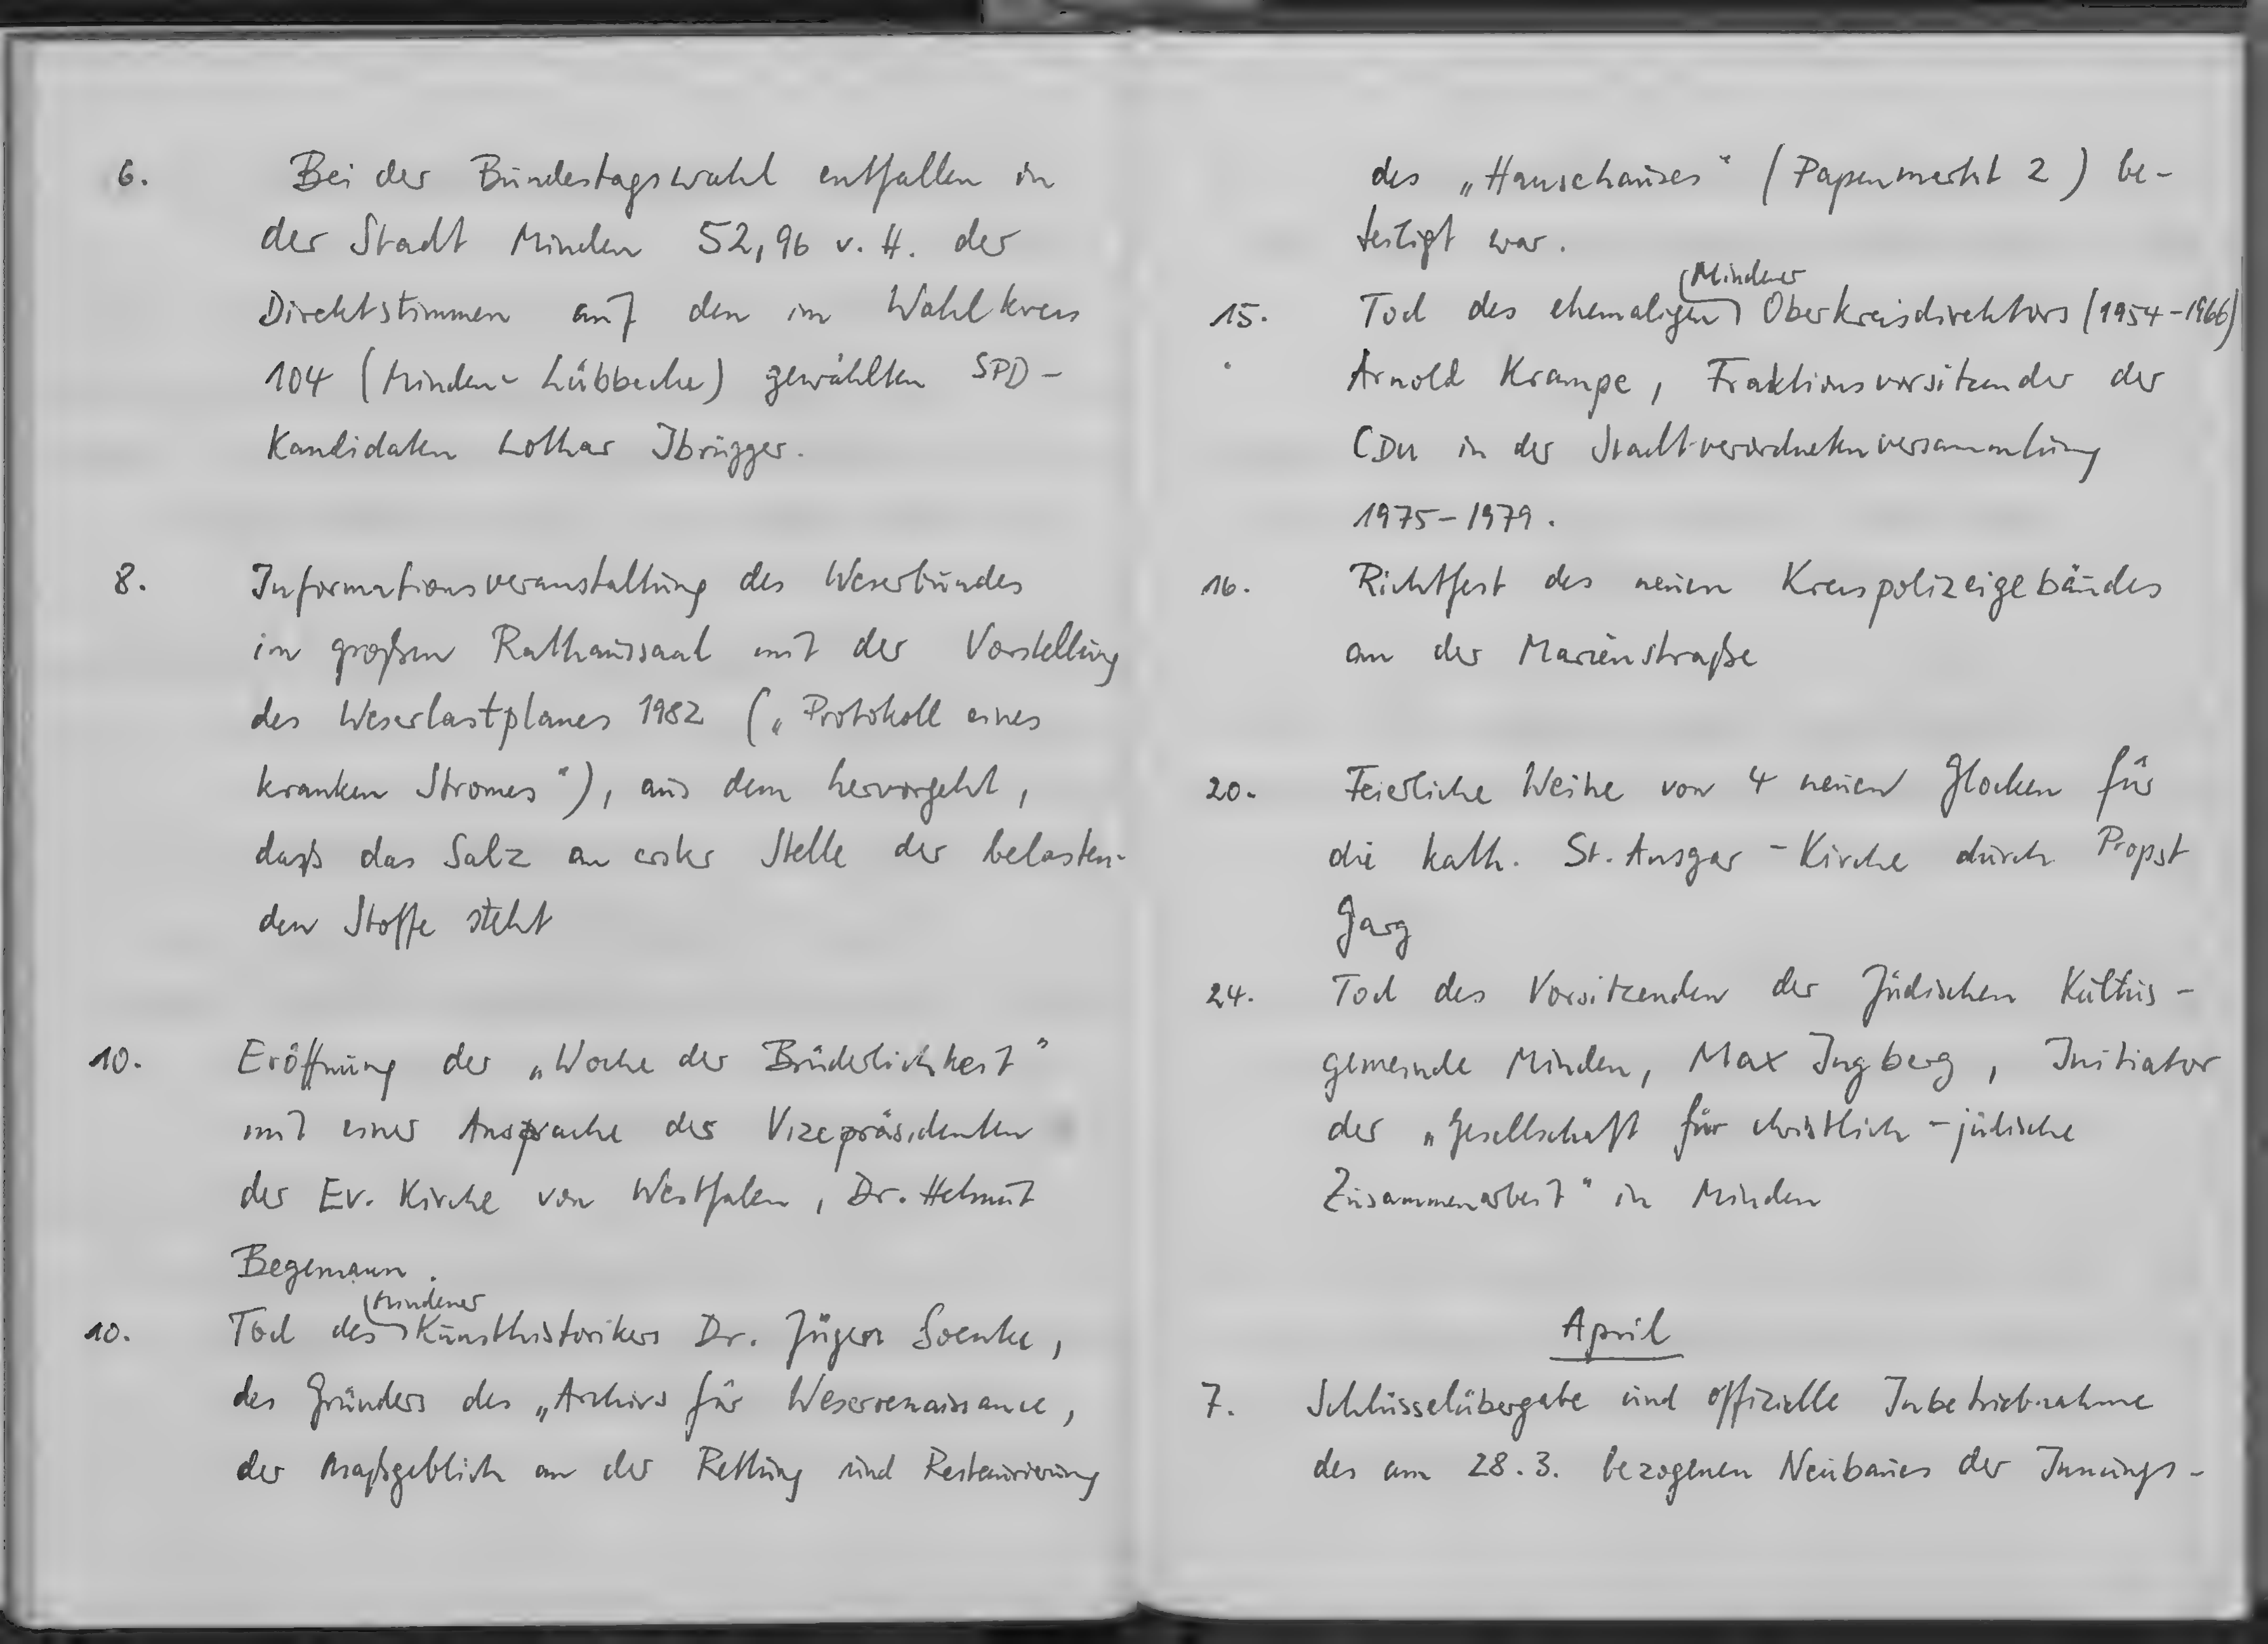 6. Bei der Bundestagswahl entfallen in
der Stadt Minden 52,96 v. H. der
Direktstimmen auf den im Wahlkreis
104 (Minden-Lübbecke) gewählten SPD-
Kandidaten Lothar Ibrügger.
8. Informationsveranstaltung des Weserbundes
im großen Rathaussaal mit der Vorstellung
des Weserlastplanes 1982 („Protokoll eines
kranken Stromes"), aus dem hervorgeht,
daß das Salz an erster Stelle der belasten-
den Stoffe steht
10. Eröffnung der „Woche der Brüderlichkeit"
mit einer Ansprache des Vizepräsidenten
der Ev. Kirche von Westfalen, Dr. Helmut
Begemann.
10. Tod des Mindener Kunsthistorikers Dr. Jügen Soenke,
des Gründers des „Archivs für Weserrenaissance,
der maßgeblich an der Rettung und Restaurierung
des „Hansehauses" (Papenmarkt 2) be-
teiligt war.
15. Tod des ehemaligen Mindener Oberkreisdirektors (1954-1966)
Arnold Krampe, Fraktionsvorsitzender der
CDU in der Stadtverordnetenversammlung
1975-1979.
16. Richtfest des neuen Kreispolizeigebäudes
an der Marienstraße
20. Feierliche Weihe von 4 neuen Glocken für
die kath. St. Ansgar-Kirche durch Propst
Garg
24. Tod des Vorsitzenden der Jüdischen Kultus-
gemeinde Minden, Max Ingberg, Initiator
der „Gesellschaft für christlich-jüdische
Zusammenarbeit" in Minden
April
7. Schlüsselübergabe und offizielle Inbetriebnahme
des am 28.3. bezogenen Neubaues der Innungs-